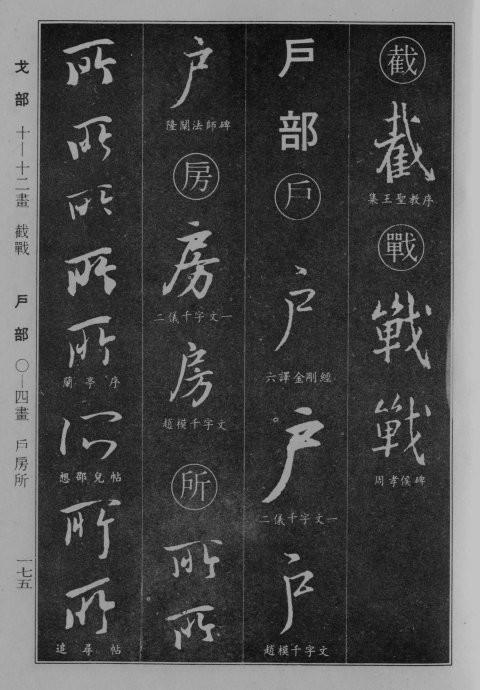 截
截
集王聖教序
戰
戰
戰
周孝侯碑
戶部
戶
戶
六譯金剛經
戶
二儀千字文一
戶
趙模千字文
戶
隆闡法師碑
房
房
二儀千字文一
房
趙模千字文
所
所
所
所
所
所
所
所
蘭亭序
所
想邵兒帖
所
所
追尋帖
戈部 十—十二畫 截戰 戶部 〇—四畫 戶房所 一七五